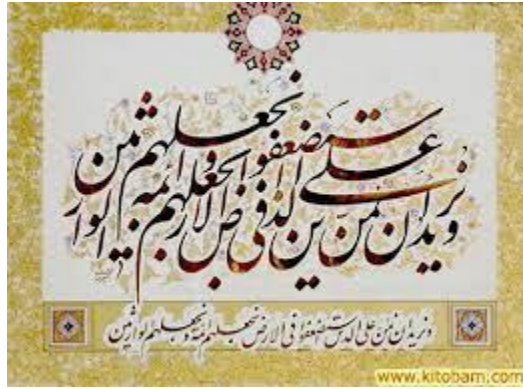 ونرید ان نمن علی الذین استضعفوا فی الارض ونجعلهم ائمه ونجعلهم الوارثین
ونرید ان نمن علی الذین استضعفوا فی الارض ونجعلهم ائمه ونجعلهم الوارثین
www.kitobam.com